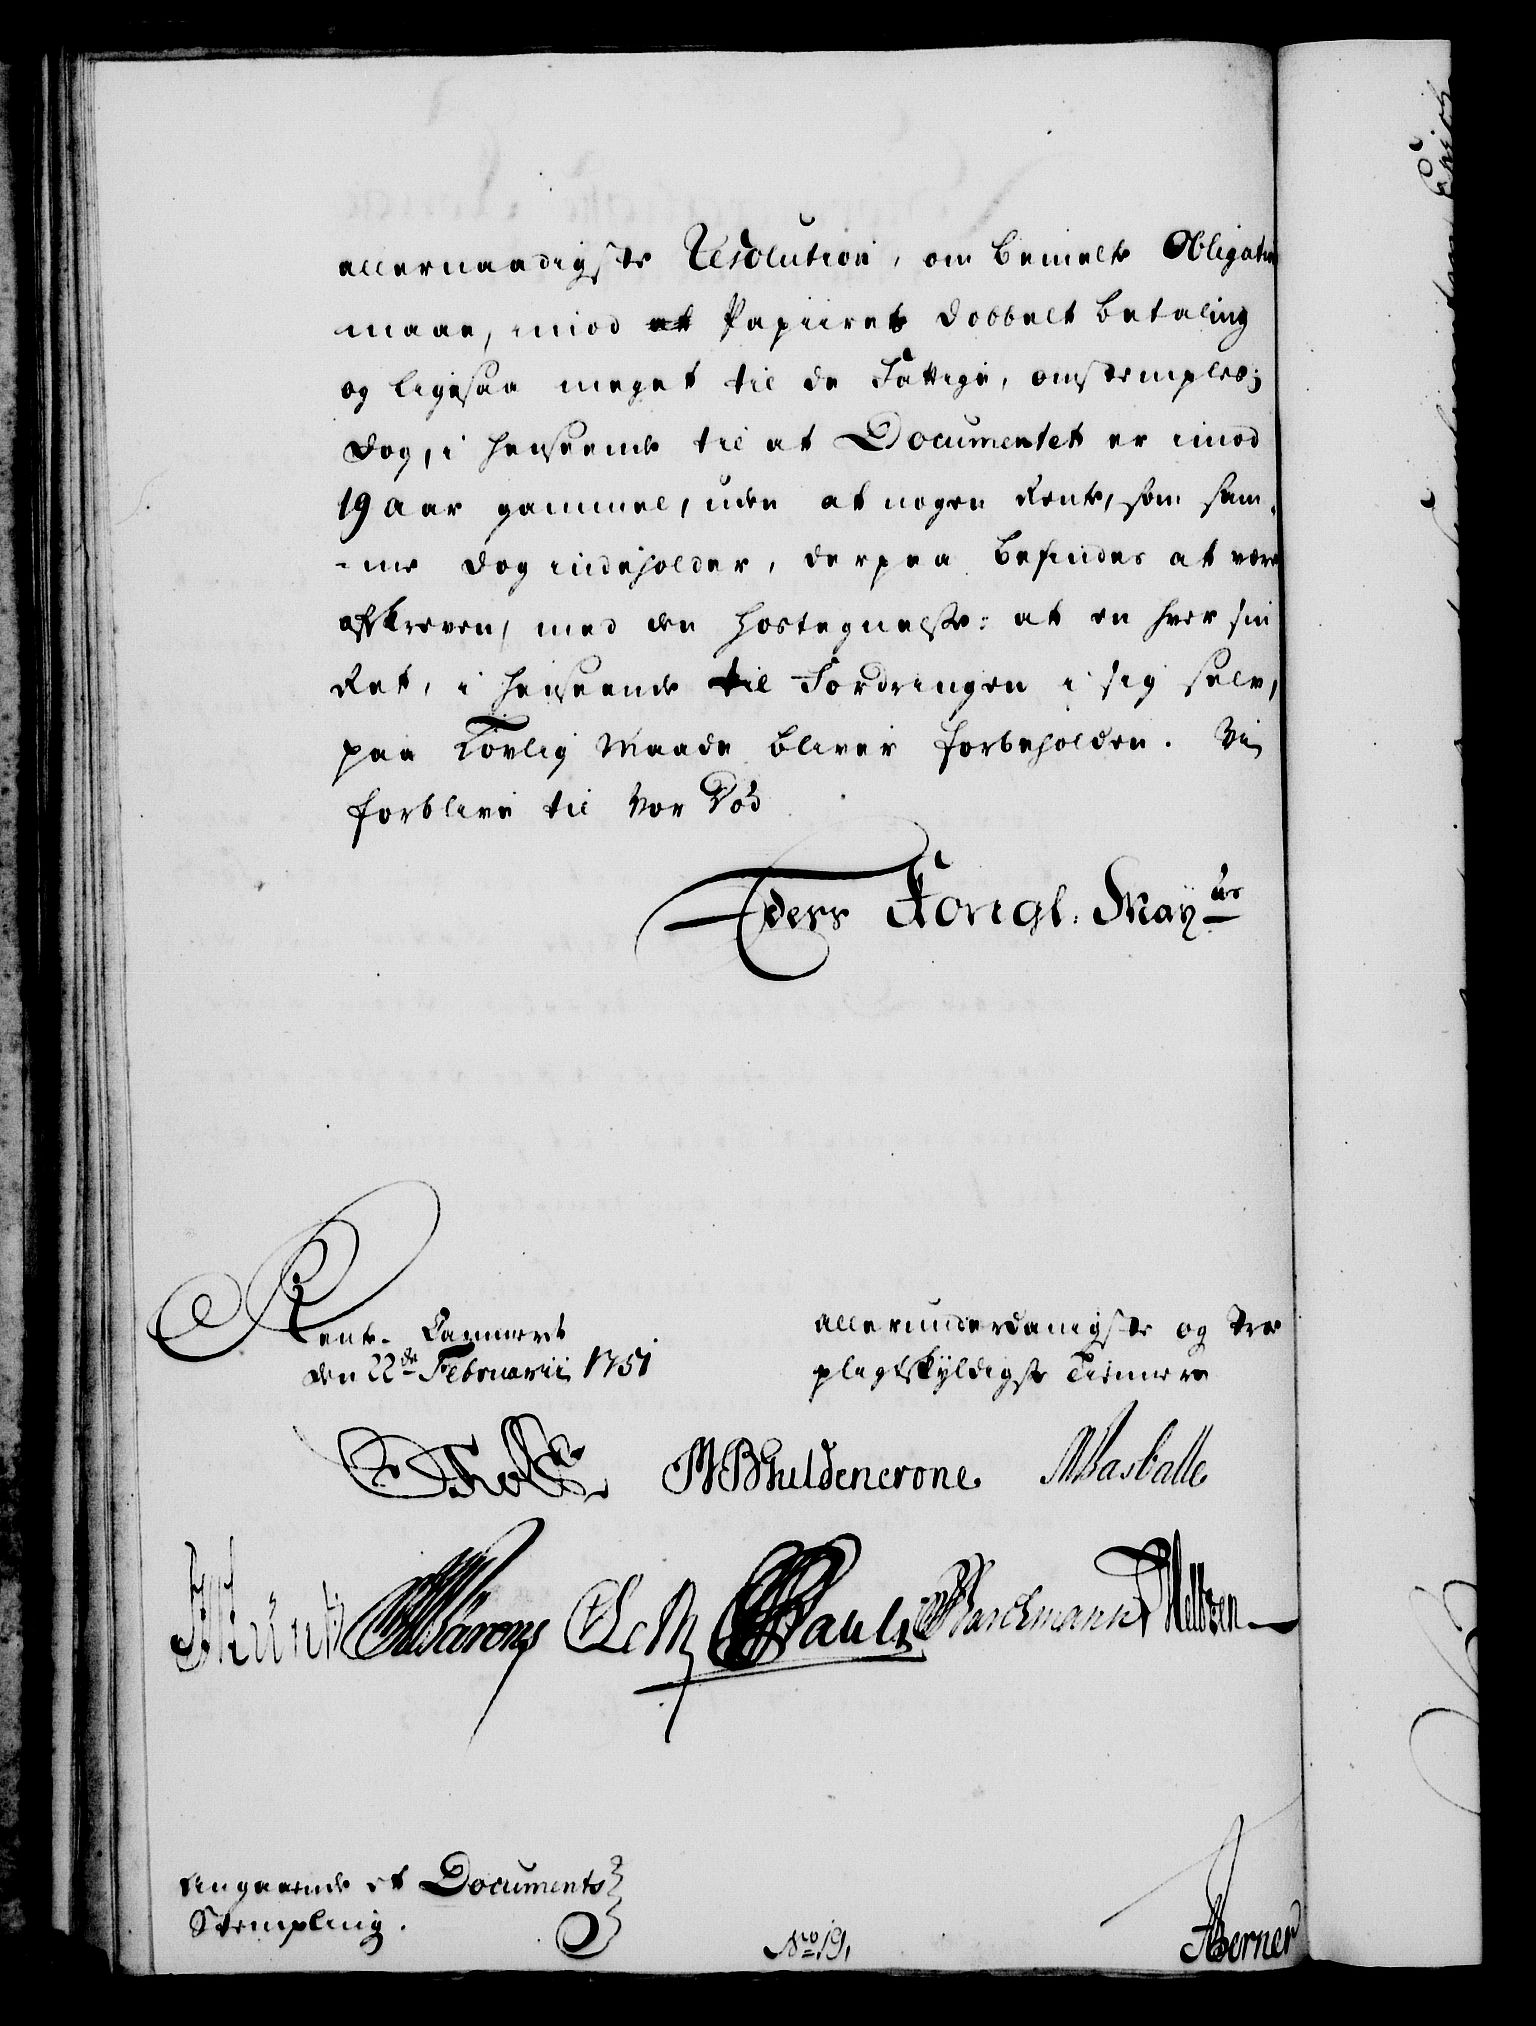 allernaadigste Resolution, om bemelte Obligation
maae, imod Papiirets dobbelt betaling
og ligesaa meget til de Fattige, omstemples;
dog, i henseende til at Documentet er imod
19 Aar gammel, uden at nogen Rente, som sam-
-me dog indeholder, derpaa befindes at være
afskreven, med den Hostegnelse: at en hver sin
Ret, i henseende til Fordringen i sig selv,
paa Lovlig Maade bliver forbeholden. Vi
forblive til vor Død
Eders Kongl. May.ts
Rente-Cammeret
den 22de Februarii 1751
allerunderdanigste og troe
pligtskyldigste Tiennere
Holst
MBGuldencrone
Basballe
Pauli
Angaaende et Documents
Stempling.
No 19.
Berner